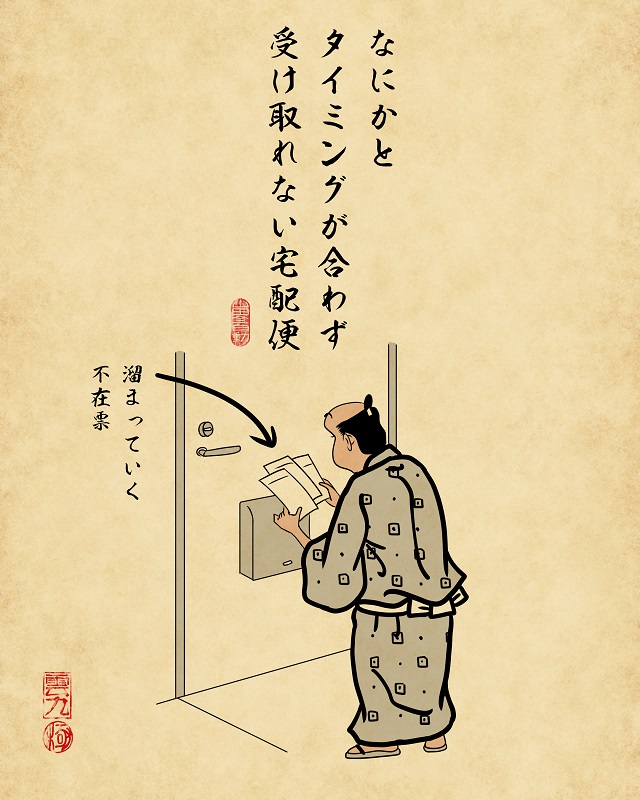 なにかと
タイミングが合わず
受け取れない宅配便
溜まっていく
不在票